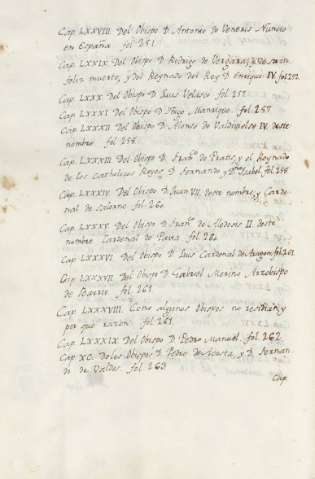 Cap. LXXVIII. Del Obispo D. Antonio de Veneris Nuncio
en España fol. 251.
Cap. LXXIX Del Obispo D. Rodrigo de Vergara, y de
muerte, y del Reynado del Rey D. Enrique IV. fol. 252
Cap. LXXX. Del Obispo D. Luis Velasco. fol. 255.
Cap. LXXXI Del Obispo D. Iñigo Manrique. fol. 257
Cap. LXXXII Del Obispo D. Alonso de IV. deste
nombre. fol. 258.
Cap. LXXXIII Del Obispo D. Juan de Pratis, y el Reynado
de los Catholicos Reyes, D. Fernando, y Dª Isabel, fol. 258
Cap. LXXXIV. Del Obispo D. Juan VII. deste nombre, y Carde-
nal de Salerno fol. 260.
Cap. LXXXV. Del Obispo D. de Medicis II. deste
nombre Cardenal de Pavia fol.
Cap. LXXXVI Del Obispo D. Luis Cardenal de Aragon, fol. 261
Cap. LXXXVII Del Obispo D. Gabriel Merino Arzobispo
de fol. 261
Cap. LXXXVIII. Como algunos Obispos no residian, y
por que razon. fol. 261.
Cap. LXXXIX Del Obispo D. Pedro Manuel. fol. 262
Cap. XC. De los Obispos D. Pedro de Acosta, y D. Fernan-
do de Valdes. fol. 263
Cap.